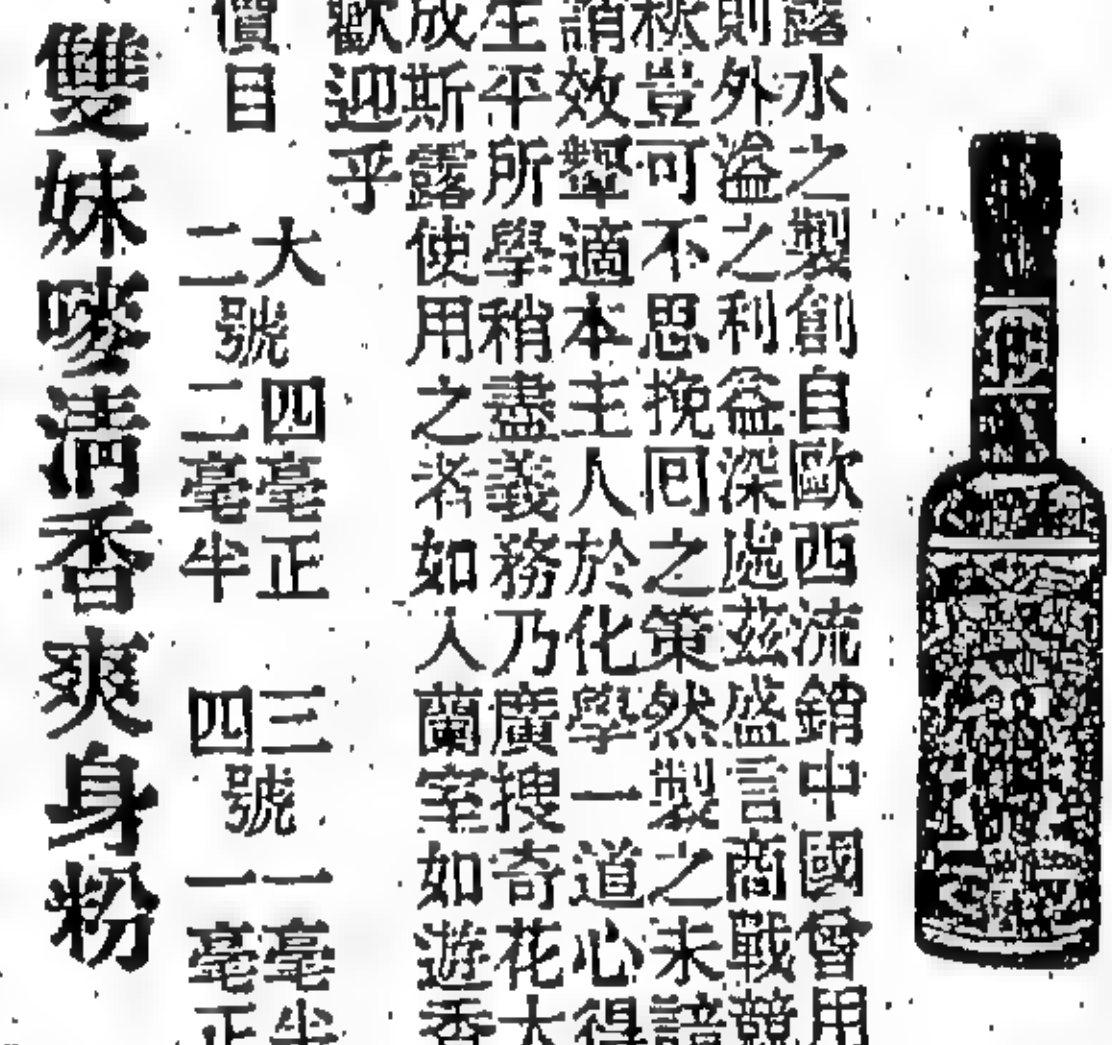 露水之製創自歐西流銷中國曾用
則外溢之利益深處茲盛言商戰競
秋豈可不思挽囘之策然製之未諳
誚效顰適本主人於化學一道心得
生平所學稍盡義務乃廣搜奇花大
成斯露使用之者如入蘭室如遊香
歡迎乎
價目
大號四毫正 三號一毫半
二號二毫半 四號一毫正
雙妹嘜清香爽身粉